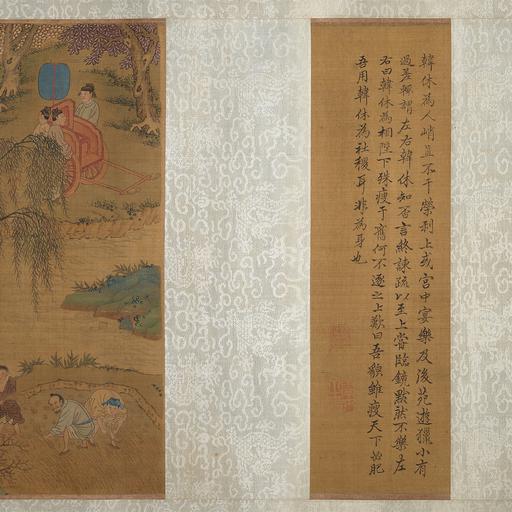 韓休為人峭直不干榮利上或宮中宴樂及後苑遊獵小有
過差輒謂左右韓休知否言終諫疏以至上嘗臨鏡默然不樂左
右曰韓休為相陛下殊瘦于舊何不逐之上歎曰吾貌雖瘦天下必肥
吾用韓休為社稷耳非為身也